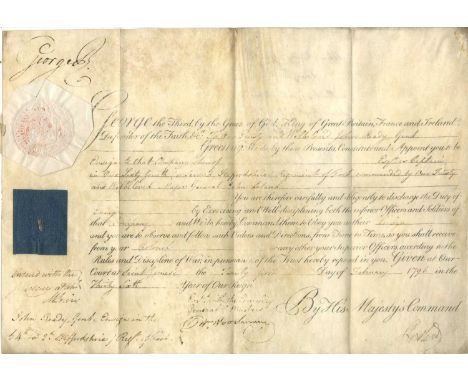 George R.
George the Third, by the Grace of God, King of Great Britain, France and Ireland
Defender of the Faith, &c. To Our Trusty and Wellbeloved John Ready Gent
Greeting: We do by these Presents, Constitute and Appoint you to be
Ensign to that Company whereof Esq is Captain
in Our Sixty fourth Regiment of Foot commanded by Our Trusty
and Wellbeloved Major General John Leland
You are therefore carefully and diligently to discharge the Duty of
Ensign by Exercising and Well disciplining both the inferior Officers and Soldiers of
that Company and We do hereby Command them to Obey you as their Ensign
and you are to observe and follow such Orders and Directions from Time to Time, as you shall receive
from your Colonel or any other your Superior Officer, according to the
Rules and Discipline of War, in pursuance of the Trust hereby reposed in you. Given at Our
Court at Saint James's the Twenty Day of February 1796 in the
Thirty Sixth Year of Our Reign
Entered with the
By His Majesty's Command
John Ready, Gent. Ensign in the
64th or 2d Staffordshire Regt of Foot